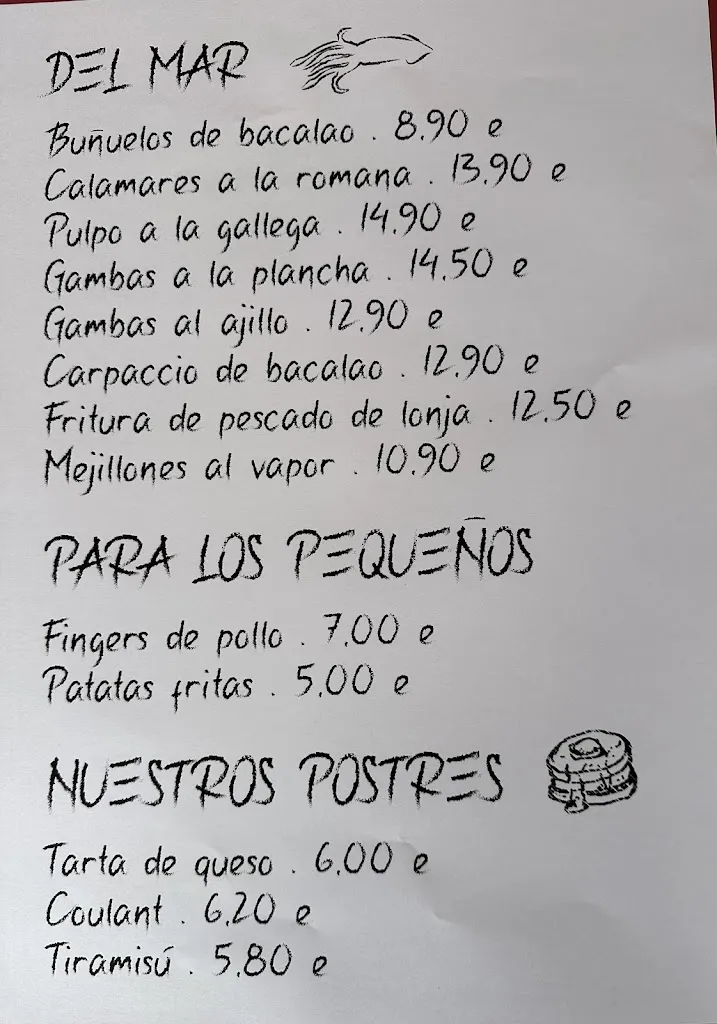 DEL MAR
Buñuelos de bacalao . 8,90 e
Calamares a la romana . 13,90 e
Pulpo a la gallega . 14,90 e
Gambas a la plancha . 14,50 e
Gambas al ajillo . 12,90 e
Carpaccio de bacalao . 12,90 e
Fritura de pescado de lonja . 12,50 e
Mejillones al vapor . 10,90 e
PARA LOS PEQUEÑOS
Fingers de pollo . 7,00 e
Patatas fritas . 5,00 e
NUESTROS POSTRES
Tarta de queso . 6,00 e
Coulant . 6,20 e
Tiramisú . 5,80 e